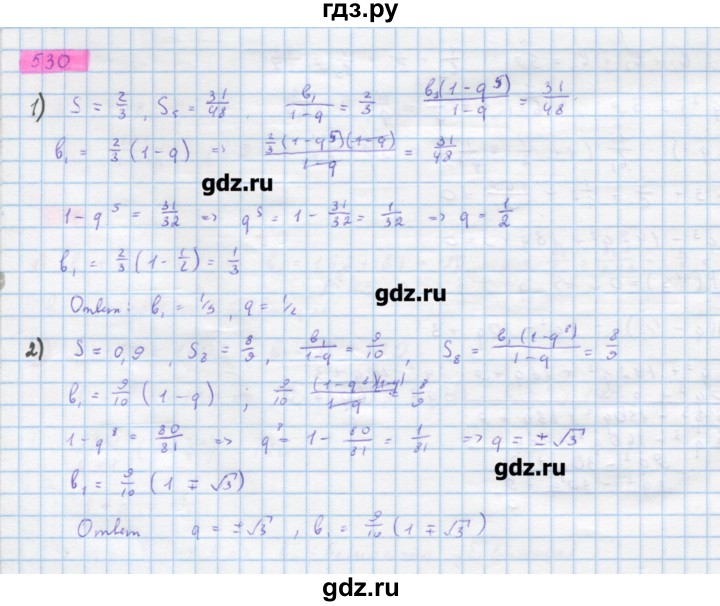 гдз.ру
530
1) S = 2/3 , S₅ = 31/48 . b₁/(1-q) = 2/3 b₁(1-q⁵)/(1-q) = 31/48 .
b₁ = 2/3 (1-q) => 2/3(1-q⁵)(1-q)/(1-q) = 31/48
gdz.ru
1-q⁵ = 31/32 => q⁵ = 1 - 31/32 = 1/32 => q = 1/2
b₁ = 2/3 (1 - 1/2) = 1/3
gdz.ru
Ответ: b₁ = 1/3 , q = 1/2
2) S = 0,9 , S₈ = 8/9 , b₁/(1-q) = 9/10 , S₈ = b₁(1-q⁸)/(1-q) = 8/9
b₁ = 9/10 (1-q) ; 9/10 (1-q⁸)(1-q)/(1-q) = 8/9
1-q⁸ = 80/81 => q⁸ = 1 - 80/81 = 1/81 => q = ±√3
gdz.ru
b₁ = 9/10 (1 ∓ √3)
Ответ q = ±√3 , b₁ = 9/10 (1 ∓ √3)
gdz.ru